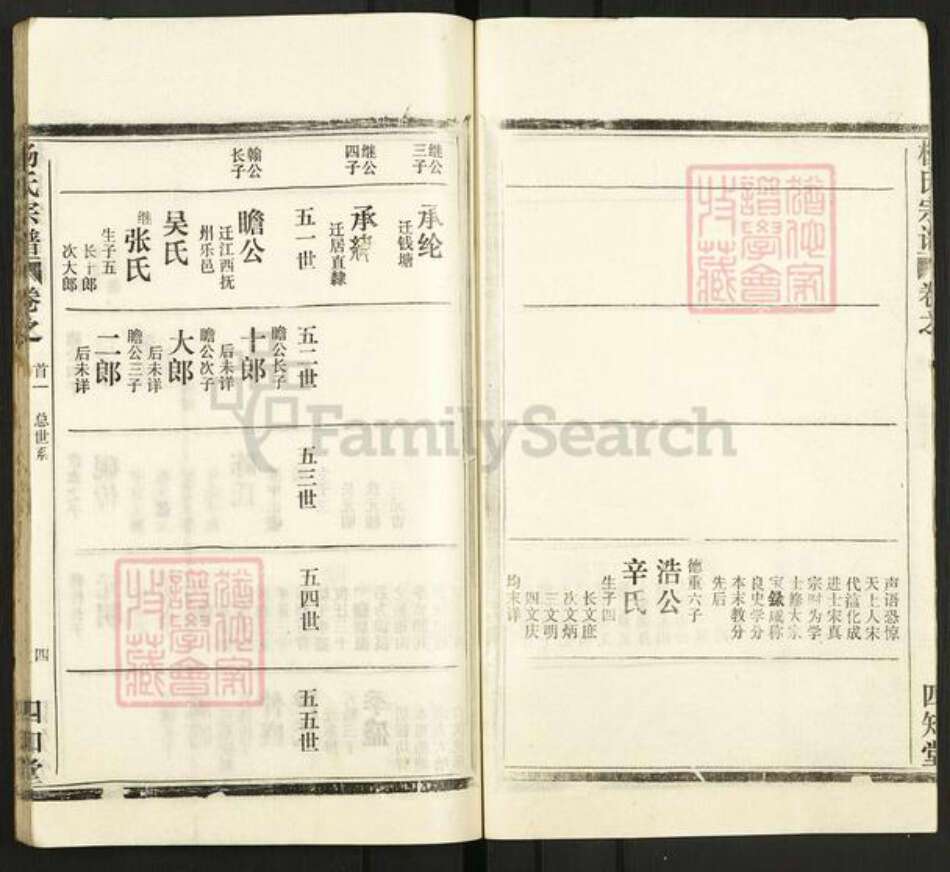 声语恐惊
天上人宋
代谥化成
进士宋真
宗时为学
士修大宗
宝录咸称
良史学分
本末教分
先后
德重六子
浩公
辛氏
生子四
长文庶
次文炳
三文明
四文庆
均未详
四知堂
继公
三子
承纶
迁钱塘
继公
四子
承绩
迁居直隸
五一世
五二世
五三世
五四世
五五世
翰公
长子
瞻公
迁江西抚
州乐邑
吴氏
继张氏
生子五
长十郎
次大郎
瞻公长子
十郎
后未详
瞻公次子
大郎
后未详
瞻公三子
二郎
后未详
杨氏宗谱
卷之
首一
总世系
四
四知堂
FamilySearch